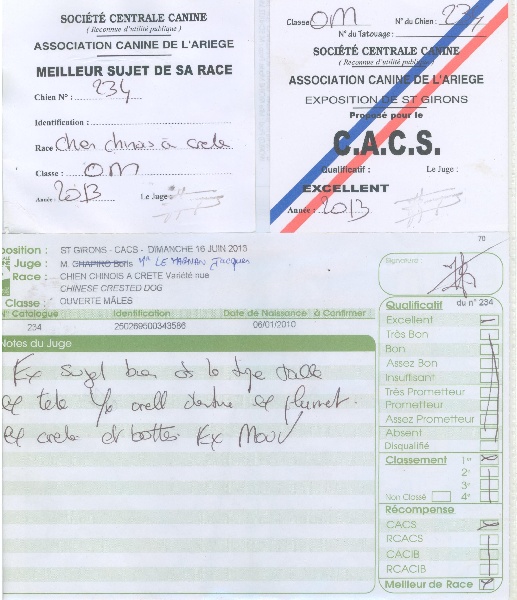 SOCIÉTÉ CENTRALE CANINE
( Reconnue d'utilité publique )
ASSOCIATION CANINE DE L'ARIEGE
MEILLEUR SUJET DE SA RACE
Chien N° : 234
Identification :
Race Chien chinois à crete
Classe : OM
Année : 2013 Le Juge :
Classe OM N° du Chien : 234
N° du Tatouage :
SOCIÉTÉ CENTRALE CANINE
( Reconnue d'utilité publique )
ASSOCIATION CANINE DE L'ARIEGE
EXPOSITION DE ST GIRONS
Proposé pour le
C.A.C.S.
Qualificatif : Le Juge :
EXCELLENT
Année : 2013
position : ST GIRONS - CACS - DIMANCHE 16 JUIN 2013
Juge : M. CHAPIRO Boris Mr LE MAGNAN Jacques
Race : CHIEN CHINOIS A CRETE Variété nue
CHINESE CRESTED DOG
Classe : OUVERTE MÂLES
N° Catalogue Identification Date de Naissance à Confirmer
234 250269500343586 06/01/2010
Notes du Juge
Ex sujet bien de la taille
ex tete oreill denture ex plumet
ex crete et bottes Ex Mouv
76
Signature :
Qualificatif du n° 234
Excellent
Très Bon
Bon
Assez Bon
Insuffisant
Très Prometteur
Prometteur
Assez Prometteur
Absent
Disqualifié
Classement 1er
2e
3e
Non Classé 4e
Récompense
CACS
RCACS
CACIB
RCACIB
Meilleur de Race